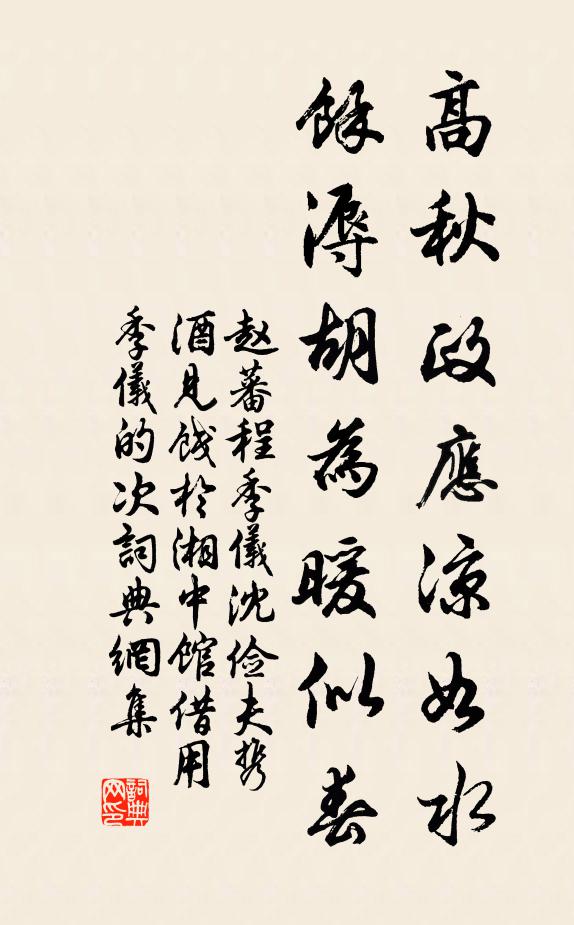 高秋政應凉如水
餘溽胡為暖似春
赵蕃程季儀沈俭夫携
酒見餞於湘中館借用
季儀的次詞典網集
詞典网印